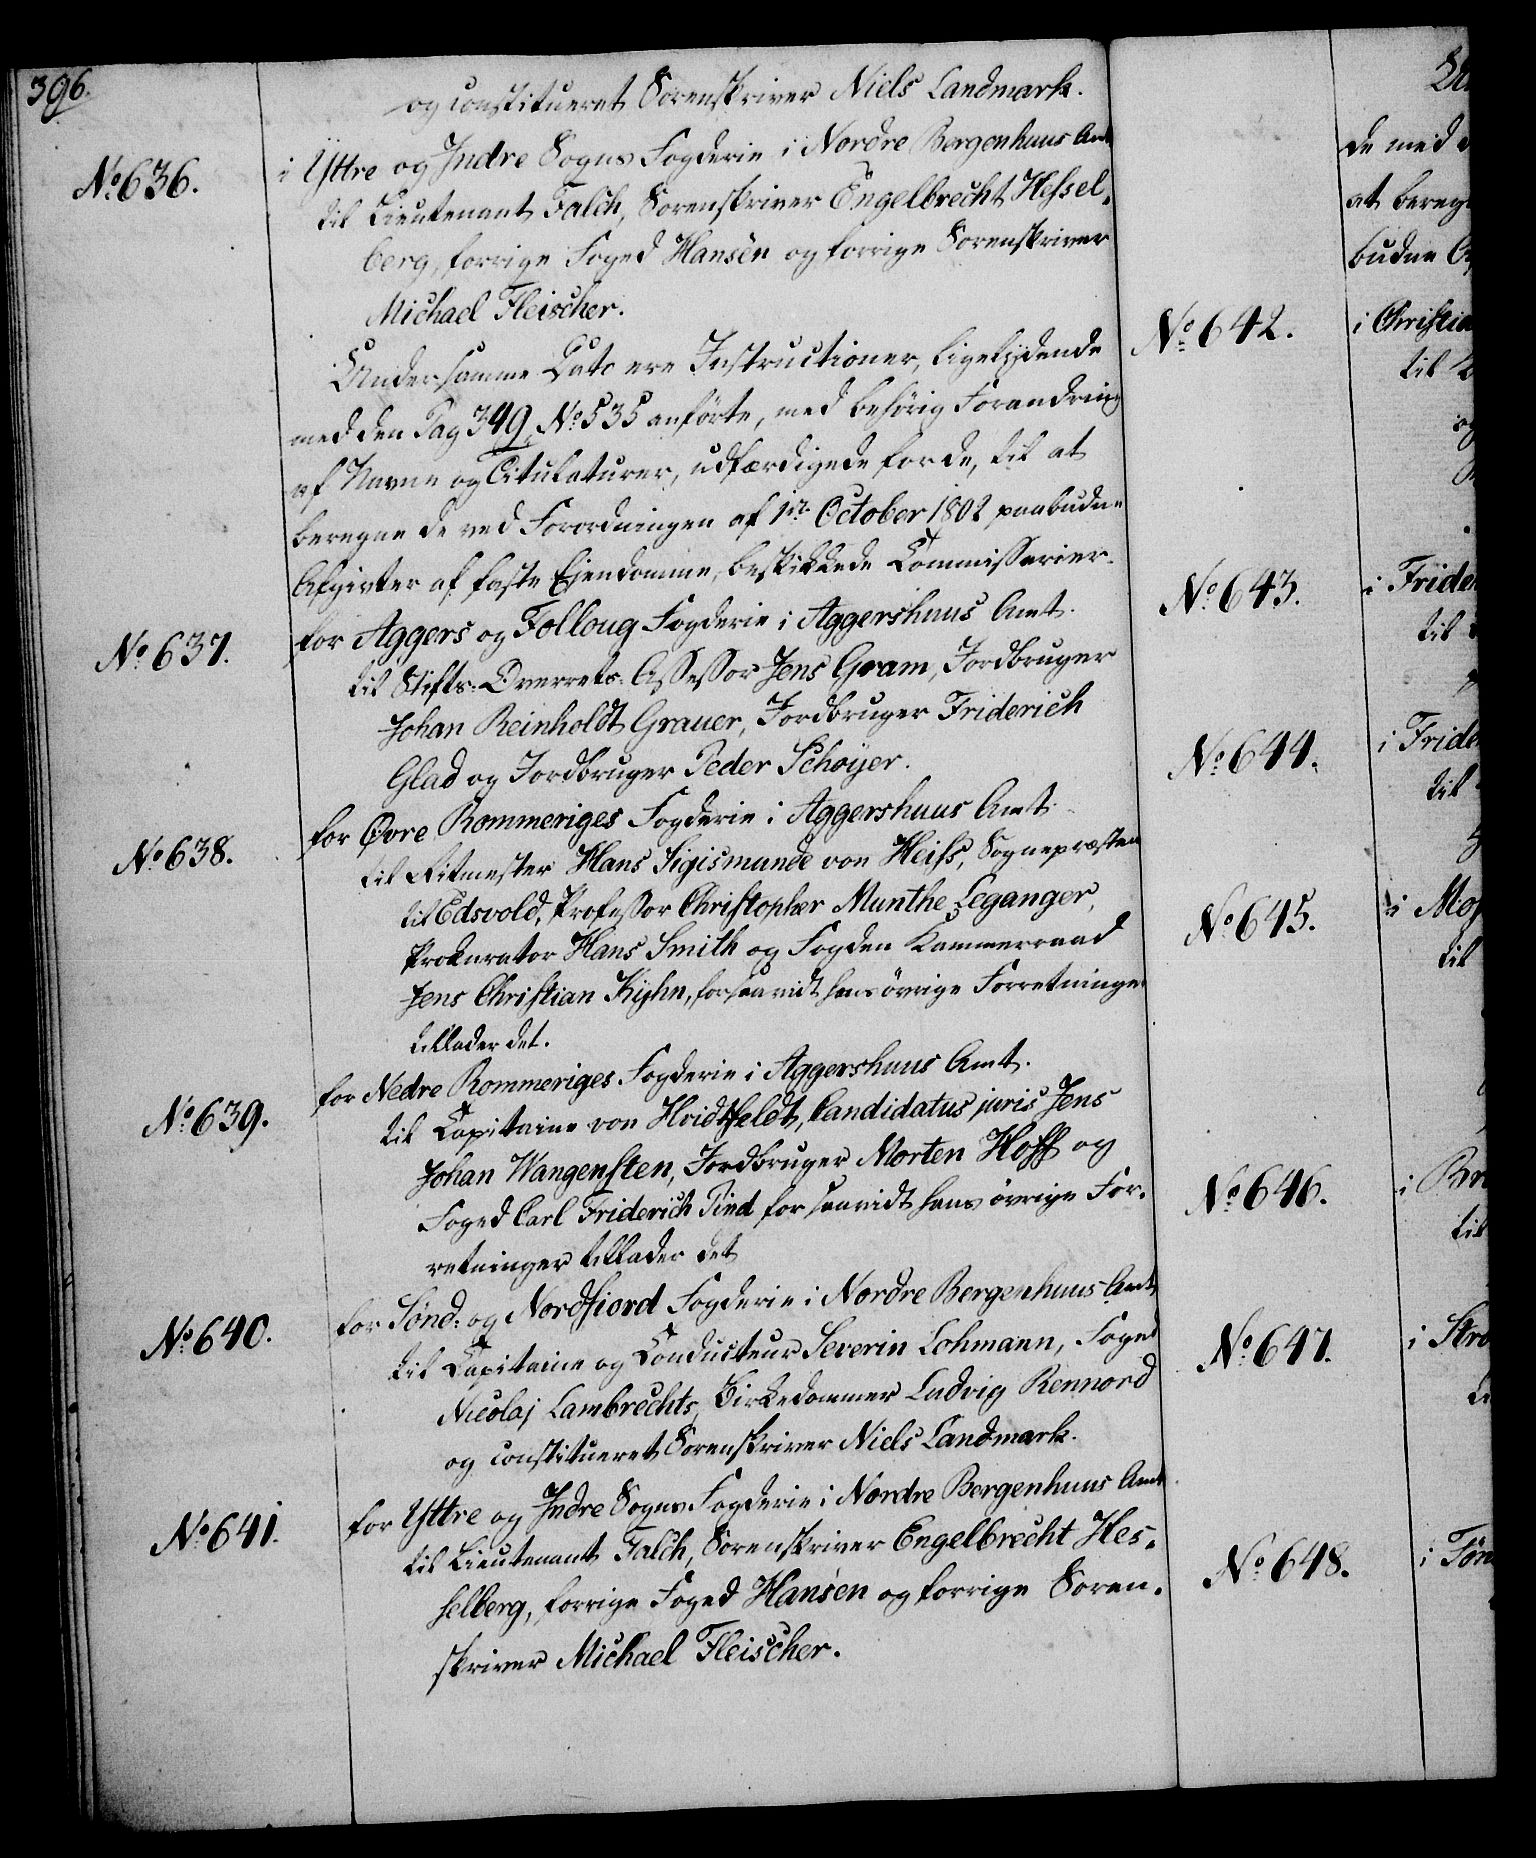 396.
og constitueret Sorenskriver Niels Landmark.
No 636. i Yttre og Indre Sogns Fogderie i Nordre Bergenhuus Amt
til Lieutenant Falch, Sorenskriver Engelbrecht Hessel-
berg, forrige Foged Hansen og forrige Sorenskriver
Michael Fleischer.
Under samme Dato ere Instructioner, ligelydende
med den Pag 349, No 535 anførte, med behörig Forandring
af Navne og Titulaturer, udfærdigede for de, til at
beregne de ved Forordningen af 1ste October 1802 paabudne
Afgivter af faste Ejendomme, beskikkede Commissarier.
No 637. for Aggers og Folloug Fogderie i Aggershuus Amt.
til Stifts-Overrets-Assessor Jens Gram, Jordbruger
Johan Reinholdt Grauer, Jordbruger Friderich
Glad og Jordbruger Peder Schøyer.
No 638. for Øvre Rommeriges Fogderie i Aggershuus Amt
til Ritmester Hans Sigismunde von Heiss, Sognepræsten
til Edsvold, Professor Christopher Munthe Leganger,
Prokurator Hans Smith og Fogden Kammerraad
Jens Christian Kyhn, forsaavidt hans övrige Forretninger
tillader det.
No 639. for Nedre Rommeriges Fogderie i Aggershuus Amt.
til Capitaine von Hvidtfeldt, Candidatus juris Jens
Johan Wangensten, Jordbruger Morten Hoff og
Foged Carl Friderich Pind for saavidt hans övrige For-
retninger tillader det
No 640. for Sønd- og Nordfiord Fogderie i Nordre Bergenhuus Amt
til Capitaine og Conducteur Severin Lohmann, Foged
Nicolaj Lambrechts, Birkedommer Ludvig Rennord
og constitueret Sorenskriver Niels Landmark.
No 641. for Yttre og Indre Sogns Fogderie i Nordre Bergenhuus Amt
til Lieutenant Falch, Sorenskriver Engelbrecht Hes-
selberg, forrige Foged Hansen og forrige Soren-
skriver Michael Fleischer.
de med
at bereg
budne
No 642. i Christia
til
og
No 643. i Frider
til
No 644. i Frider
til
No 645. i Mos
til
No 646. i
til
No 647. i Strø
No 648. i Tøn